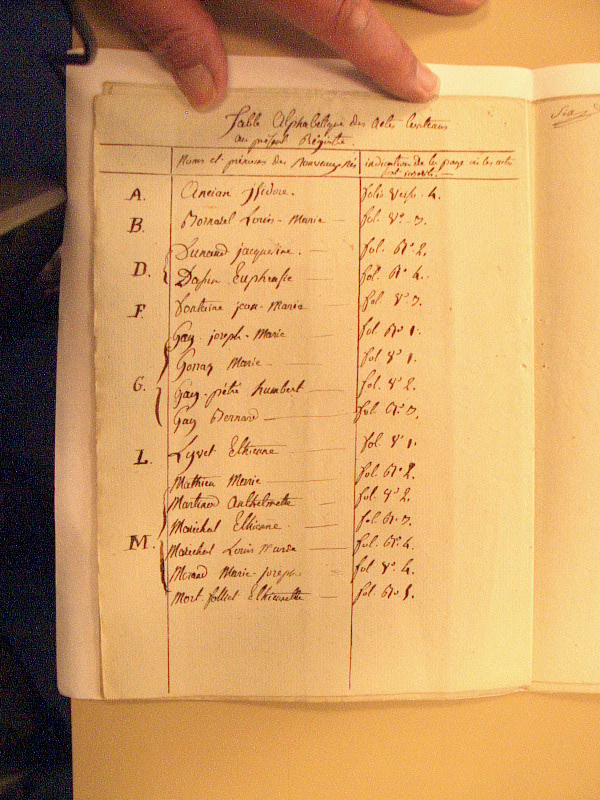 Table Alphabétique des actes contenus
au présent Registre.
Noms et prénoms des nouveaux nés indication de la page où les actes
sont inscrits.
A. Ancian Isidore. folio verso 4.
B. Bornarel Louis-Marie fol. vo 3.
Dunand jacqueline. fol. Ro 2.
D. Euphrasie fol. Ro 4.
F. Fontaine jean-Marie fol. vo 3.
Gay joseph-Marie fol. Ro 1.
Marie fol. vo 1.
G. Gay pietre humbert fol. vo 2.
Gay Bernard fol. Ro 3.
L. Lyvet Etienne fol. vo 1.
Mathieu Marie fol. Ro 2.
Martinod Anthelmette fol. vo 2.
Maréchal Etienne. fol. Ro 3.
M. Maréchal Louis Marie fol. Ro 4.
Morand Marie-josephe fol. vo 4.
Mort-follliet Etiennette fol. Ro 5.